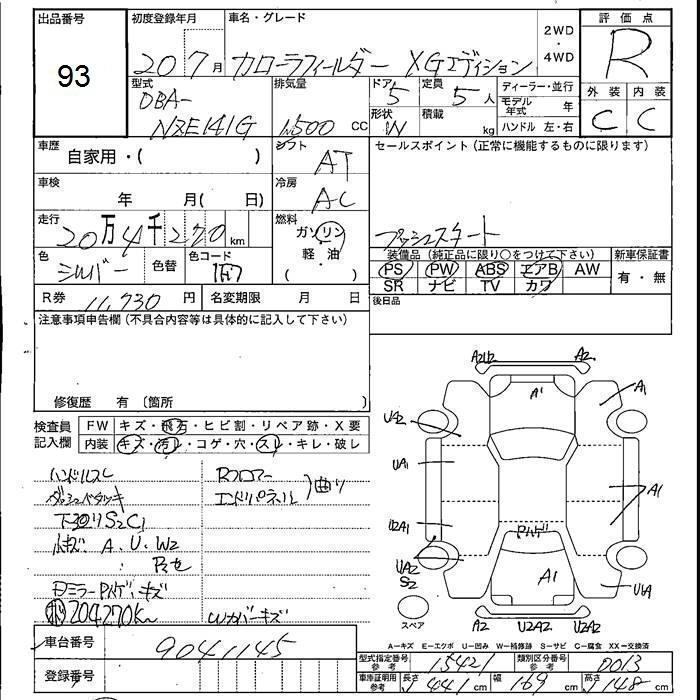 出品番号 初度登録年月 車名・グレード 2WD ・ 4WD 評価点
93 20 7月 カローラフィールダー XGエディション R
型式 排気量 ドア 定員 ディーラー・並行 外装 内装
DBA- 5 5人 モデル年式 年 C C
NZE141G 1,500 CC 形状 W 積載 kg ハンドル 左・右
車歴 自家用・( ) シフト AT セールスポイント(正常に機能するものに限ります)
車検 年 月( 日) 冷房 AC
走行 20万4千270km 燃料 ガソリン 軽・油 ( ) プッシュスタート
色 シルバー 色替 色コード 1F7 装備品(純正品に限り○をつけて下さい) 新車保証書
PS PW ABS エアB AW 有・無
SR ナビ TV カワ
R券 11,730円 名変期限 月 日 後日品
注意事項申告欄(不具合内容等は具体的に記入して下さい)
修復歴 有(箇所 )
検査員記入欄 FW キズ・飛石・ヒビ割・リペア跡・X要
内装 キズ・汚レ・コゲ・穴・スレ・キレ・破レ
ハンドルスレ Rフロアー
エンドパネル 曲り
下廻りS2C1
小キズ、A、U、W2
204270km Wカバーキズ
A2U2 A2
A1 A1
UA2
UA1 A1
U2A1
UA2 S2
A1 U1A
スペア A2 U2A2 U2A2
A=キズ E=エクボ U=凹み W=補修跡 S=サビ C=腐食 XX=交換済
車台番号 9041145 型式指定番号 参考 15421 類別区分番号 参考 0013
登録番号 車庫証明用 参考 長さ 441cm 幅 169cm 高さ 148cm